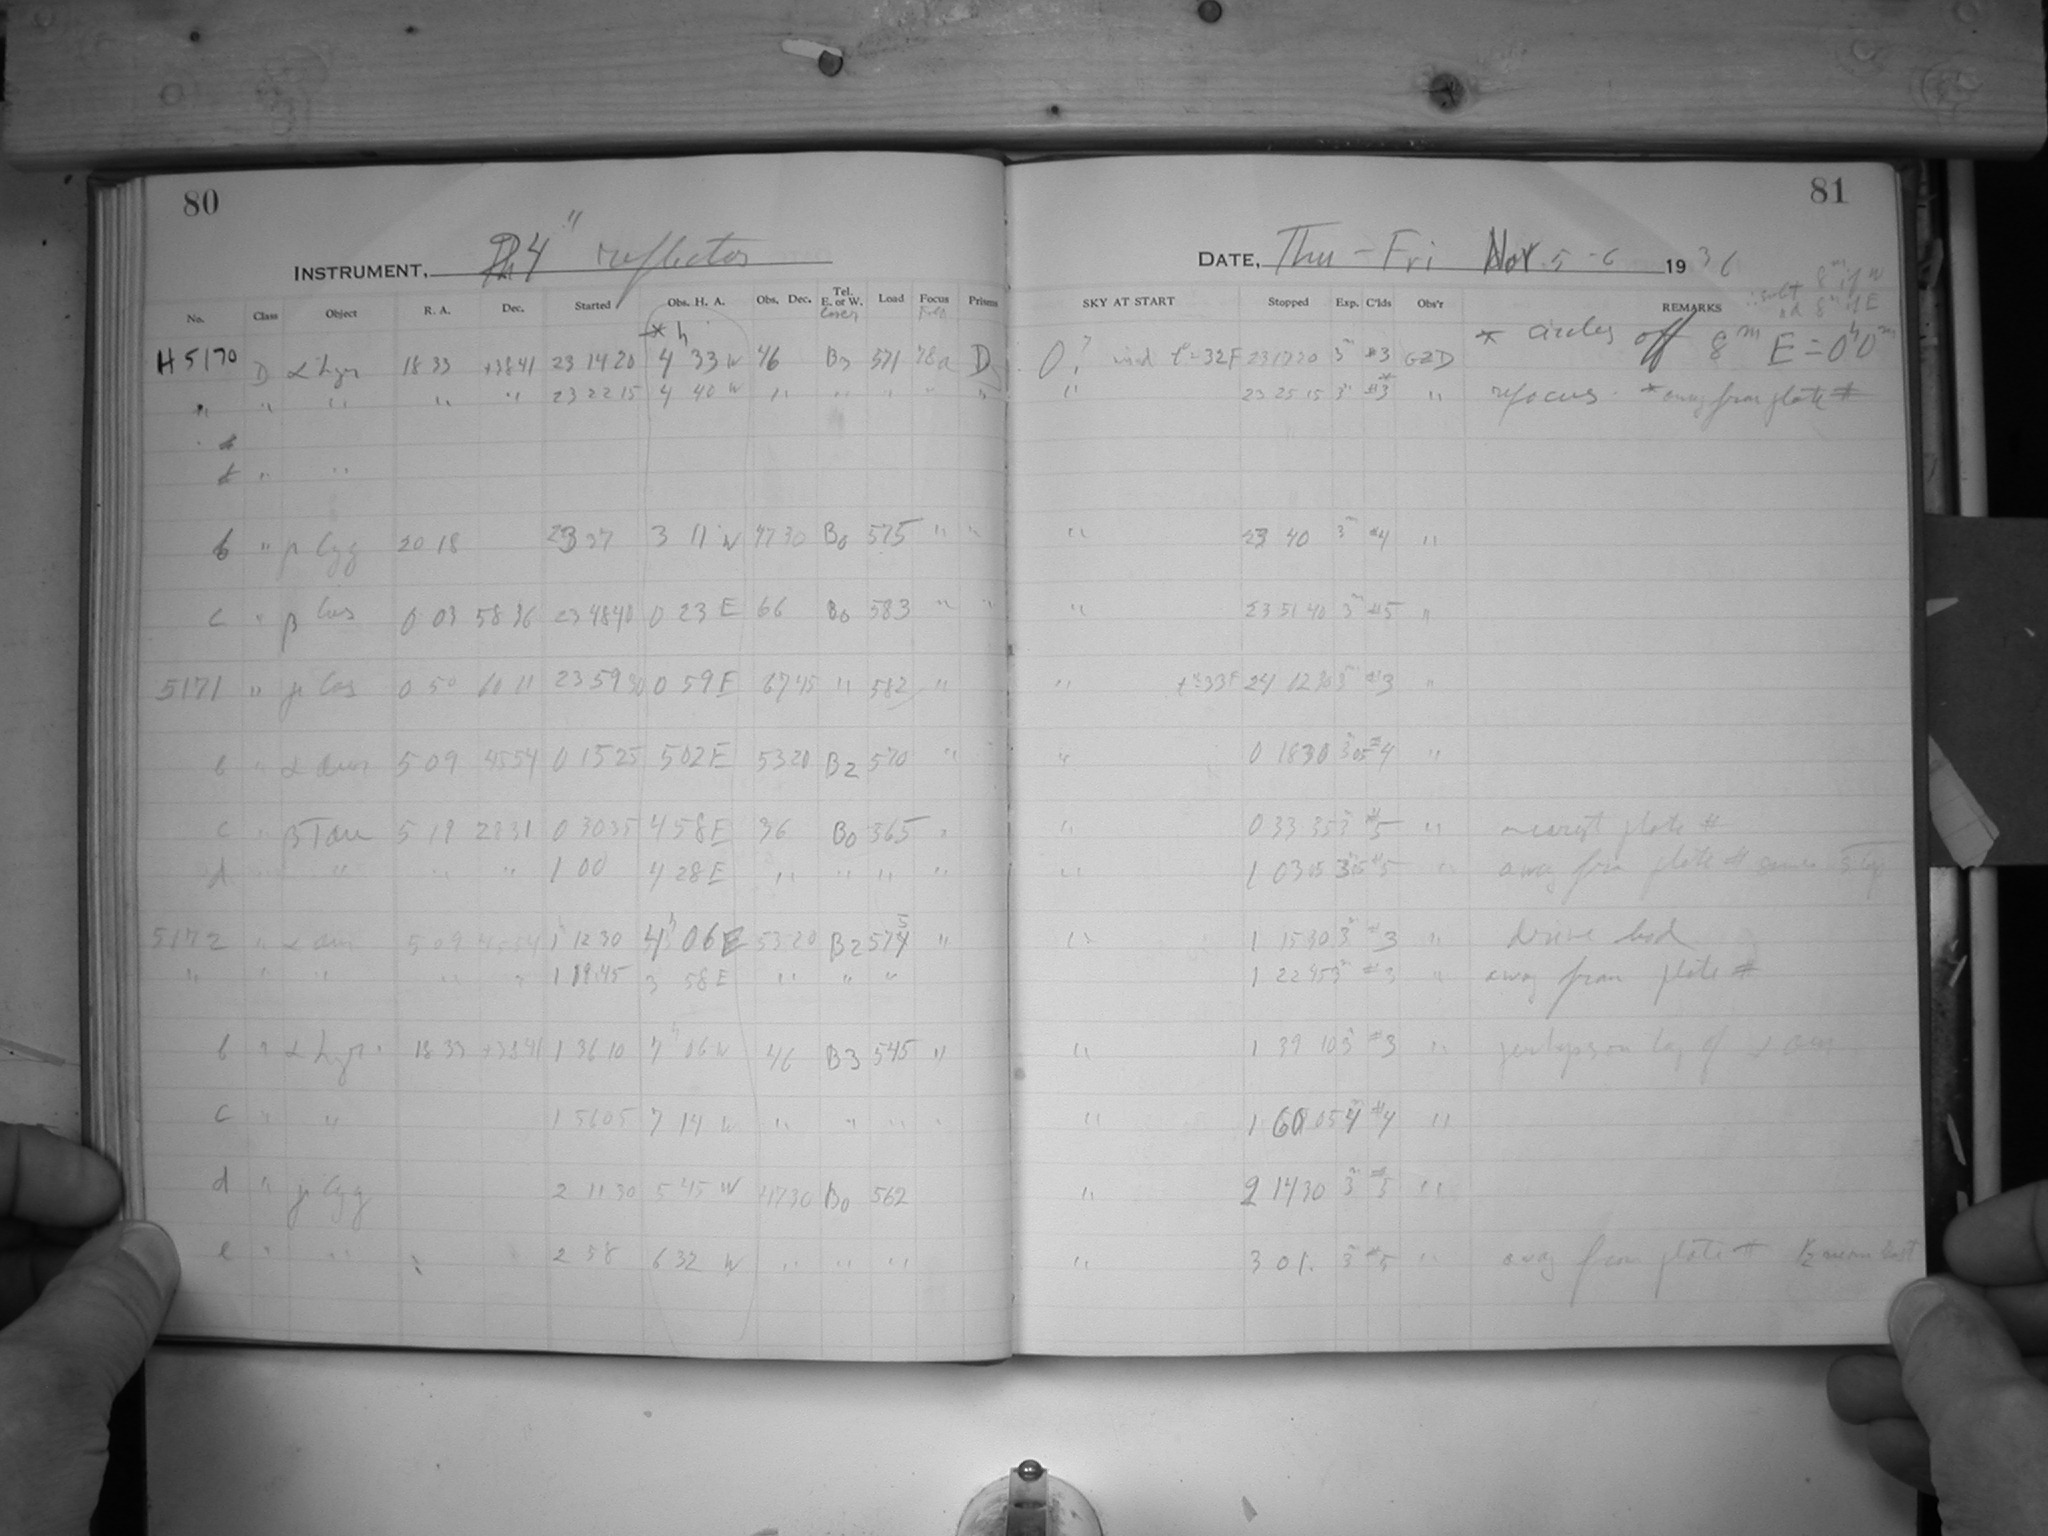 80
INSTRUMENT, 24" reflector
No. Class Object R. A. Dec. Started Obs. H. A. Obs. Dec. Tel. E. or W. Load Focus Prisms
* h
H 5170 D α Lyr 18 33 +38 41 23 14 20 4 33 W 46 B3 571 78a D
" " " " " 23 22 15 4 40 W " " " " "
" "
b " γ Cyg 20 18 23 37 3 11 W 47 30 B0 575 " "
c " β Cas 0 03 58 36 23 48 40 0 23 E 66 B0 583 " "
5171 " γ Cas 0 50 60 11 23 59 30 0 59 E 67 45 " 582 "
b " α Aur 5 09 45 54 0 15 25 5 02 E 53 20 B2 570 "
c " β Tau 5 19 28 31 0 30 35 4 58 E 36 B0 565 "
d " " " " 1 00 4 28 E " " " "
5172 " α Aur 5 09 45 54 1 12 30 4h 06 E 53 20 B2 575 "
" " " " " 1 19 45 3 58 E " " "
b " α Lyr 18 33 +38 41 1 36 10 7h 06 W 46 B3 545 "
c " " 1 56 05 7 14 W " " " "
d " γ Cyg 2 11 30 5 45 W 47 30 B0 562
e " " 2 58 6 32 W " " "
81
DATE, Thu - Fri Nov 5-6 1936
8m if W
8m if E
SKY AT START Stopped Exp. C'lds Obs'r REMARKS
* circles off 8m E = 0h 0m
0, wind t=32F 23 17 20 3m #3 GZD
" 23 25 15 3m #3* " refocus. * away from plate #
" 23 40 3m #4 "
" 23 51 40 3m #5 "
" t=33F 24 12 30 3m #3 "
" 0 18 30 3m05 #4 "
" 0 33 35 3m #5 " nearest plate #
" 1 03 05 3m05 #5 " away from plate # same step
" 1 15 30 3m #3 " drive bad
1 22 45 3m #3 " away from plate #
" 1 39 10 3m #3 "
" 1 60 05 4m #4 "
" 2 14 30 3m #5 "
" 3 01. 3m #5 " away from plate #